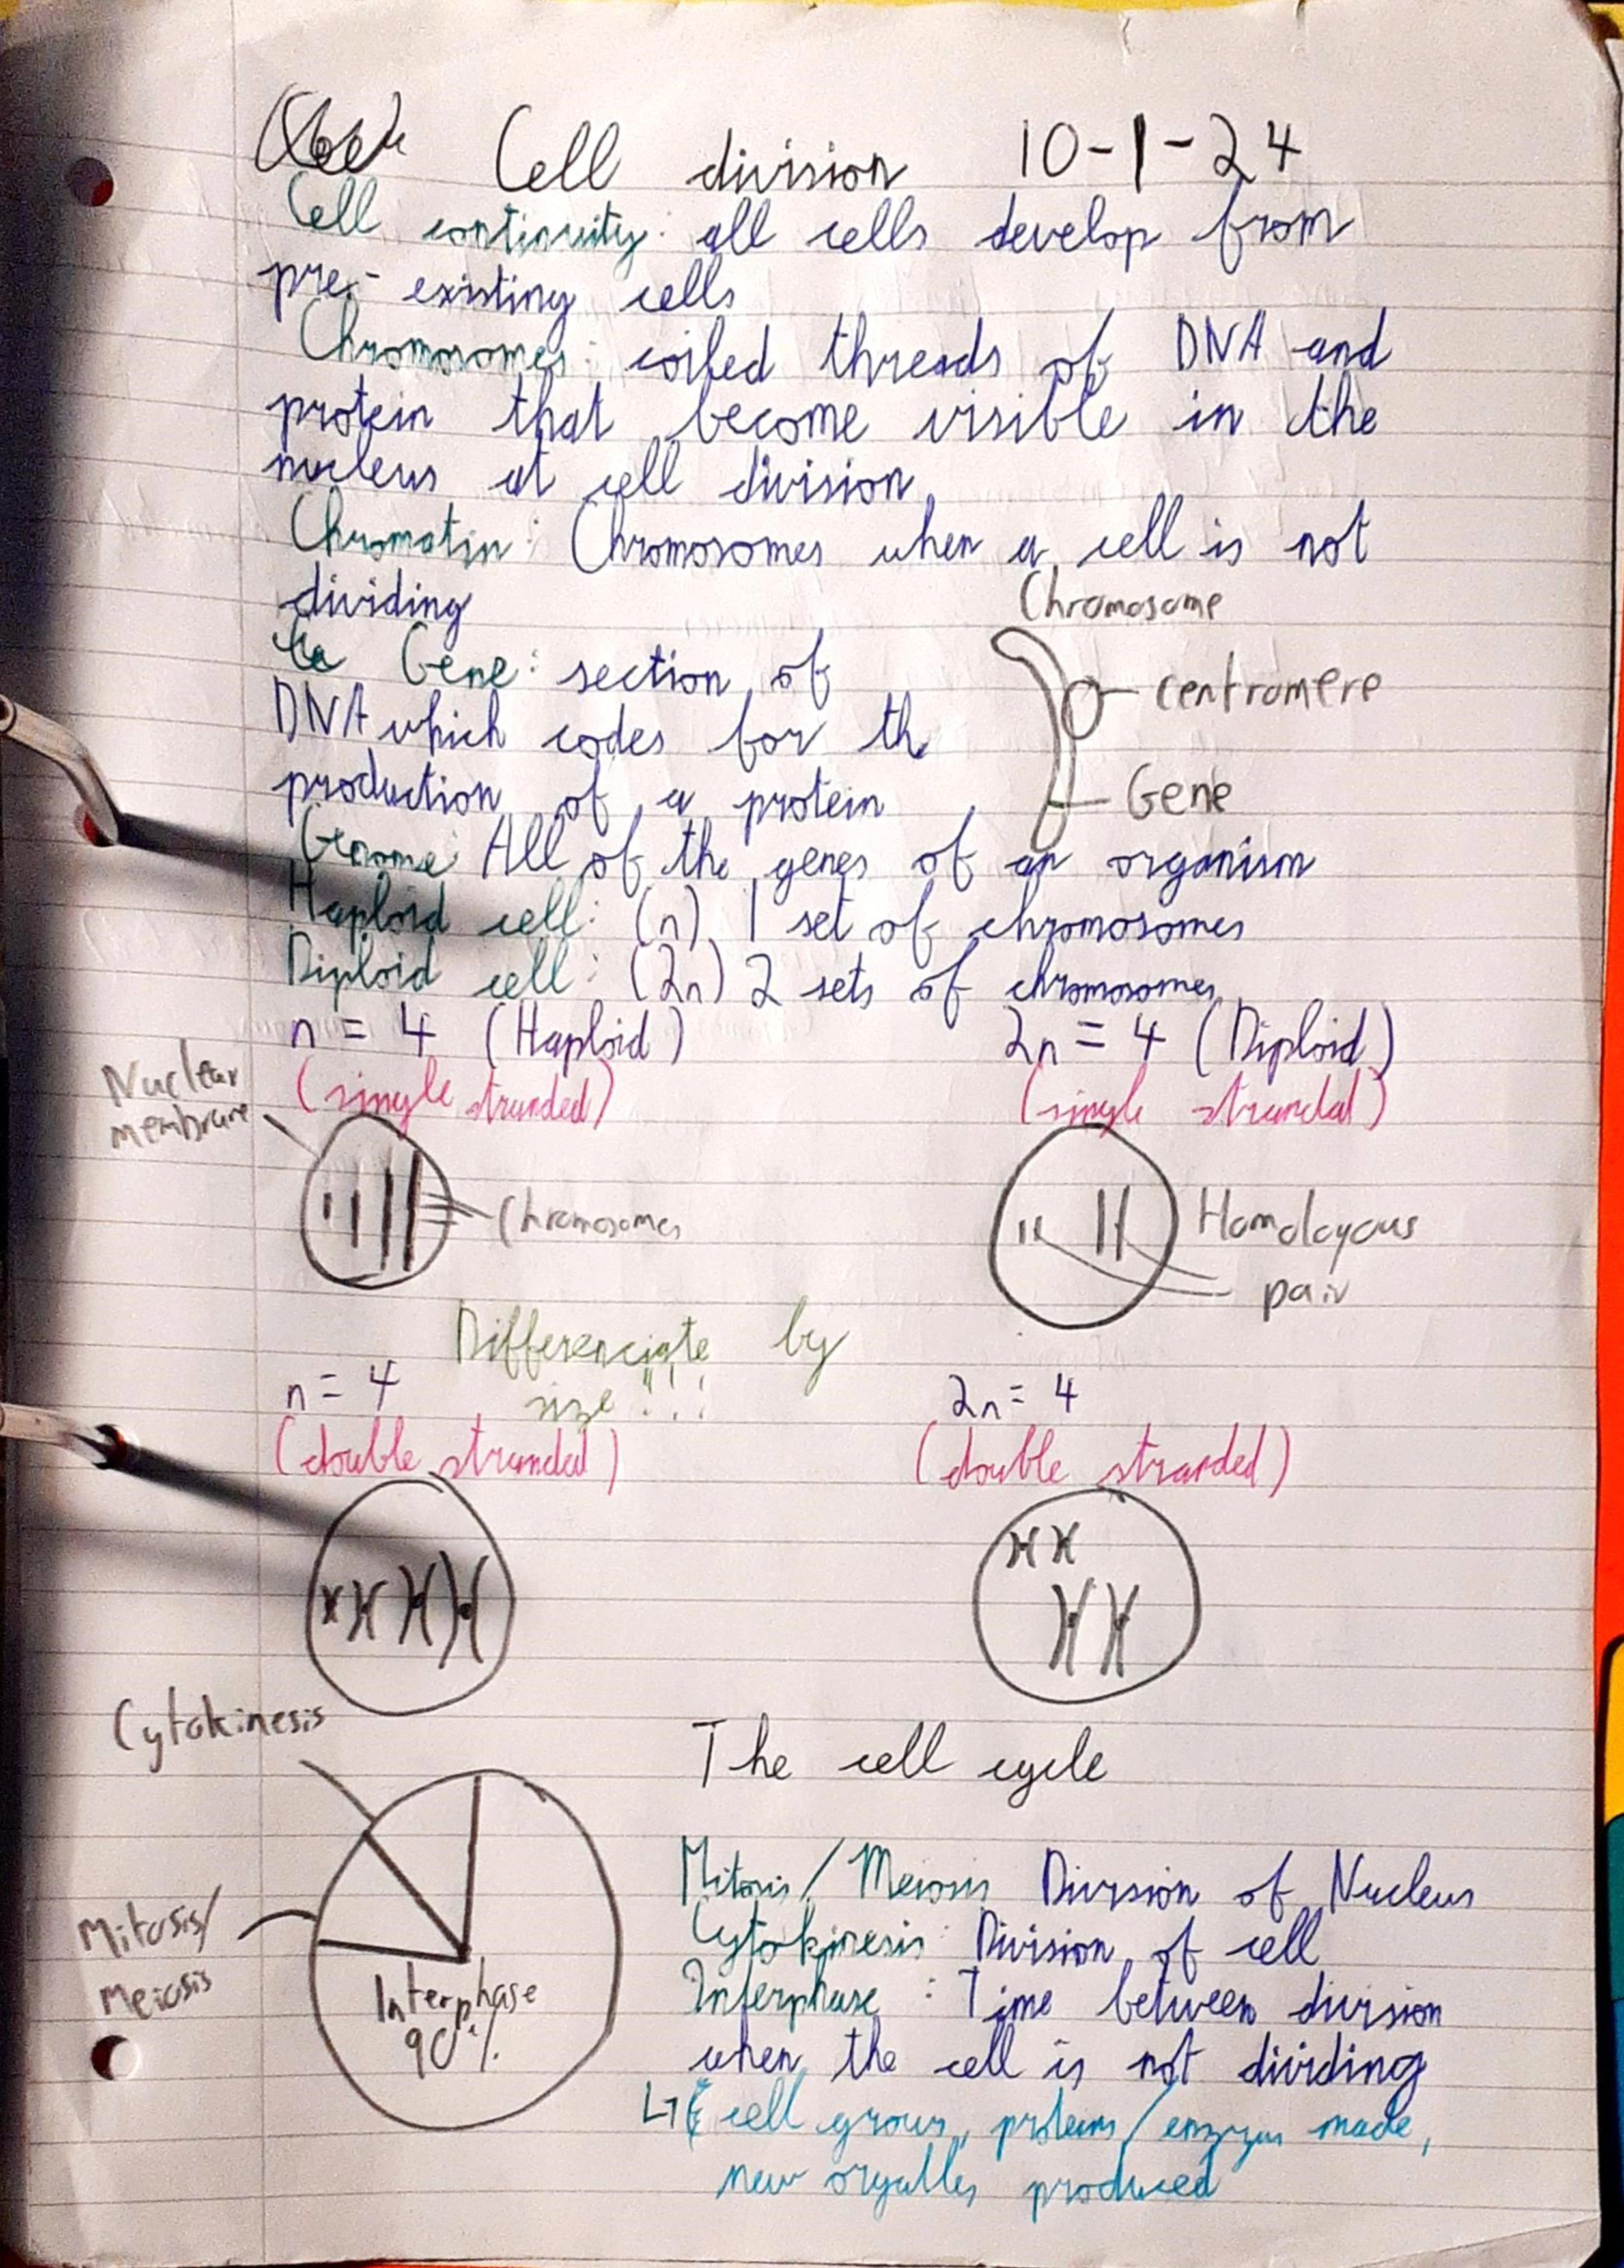 Cell division 10-1-24
Cell continuity: all cells develop from
pre-existing cells
Chromosomes: coiled threads of DNA and
protein that become visible in the
nucleus at cell division
Chromatin: Chromosomes when a cell is not
dividing
Chromosome
Gene: section of
centromere
DNA which codes for th
production of a protein
Gene
Genome: All of the genes of an organism
Haploid cell: (n) 1 set of chromosomes
Diploid cell: (2n) 2 sets of chromosomes
n = 4 (Haploid) 2n = 4 (Diploid)
(single stranded) (single stranded)
Nuclear
membrane
Chromosomes
Homologous
pair
Differenciate by
size !!!
n = 4 2n = 4
(double stranded) (double stranded)
Cytokinesis
The cell cycle
Mitosis/
Meiosis
Interphase
90%
Mitosis/Meiosis Division of Nucleus
Cytokinesis: Division of cell
Interphase: Time between division
when the cell is not dividing
cell grows, proteins/enzymes made,
new orgalles produced